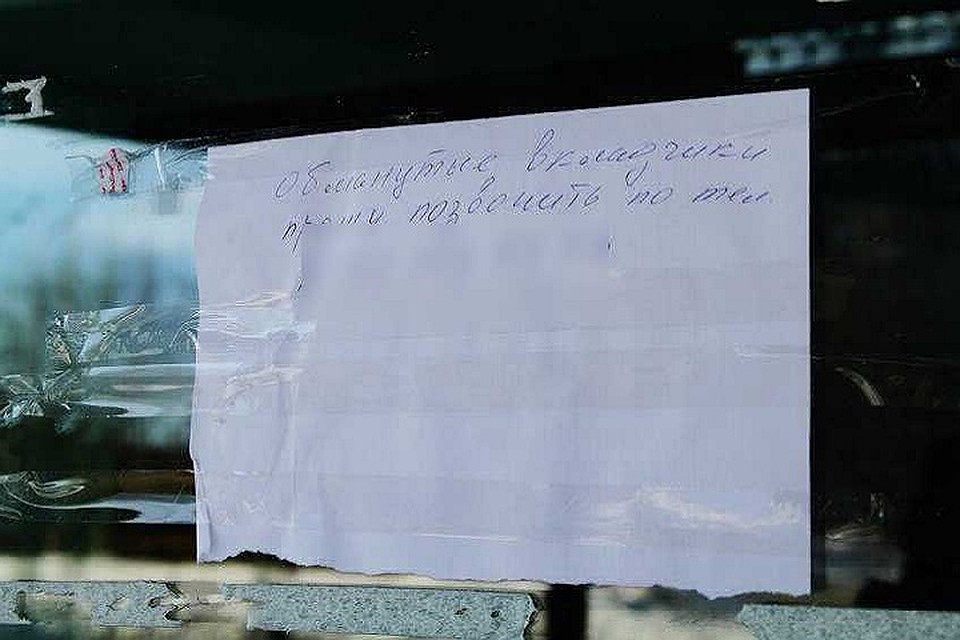 Обманутые вкладчики
просим позвонить по тел.